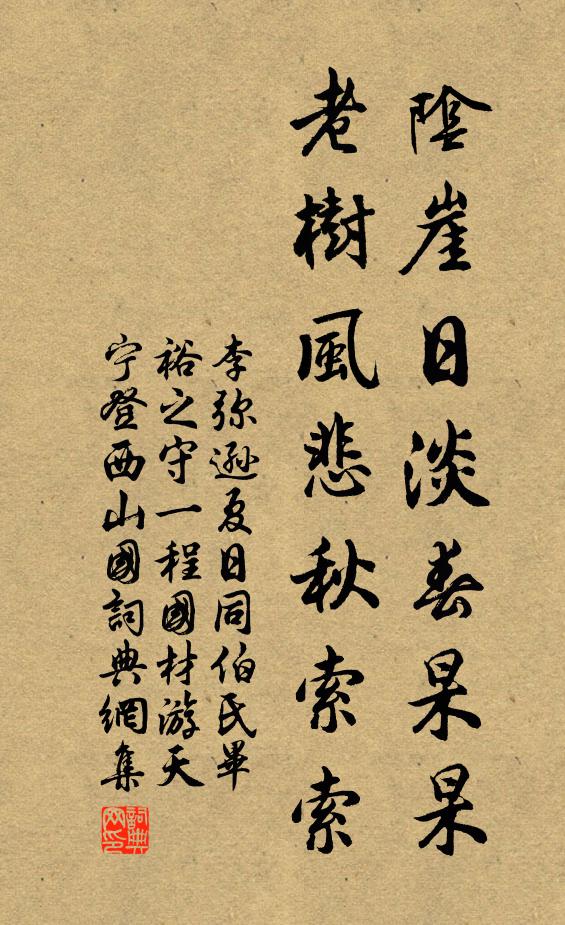 陰崖日淡春杲杲
老樹風悲秋索索
李弥遜夏日同伯氏畢
裕之守一程國材游天
宁登西山國詞典網集
詞典网印